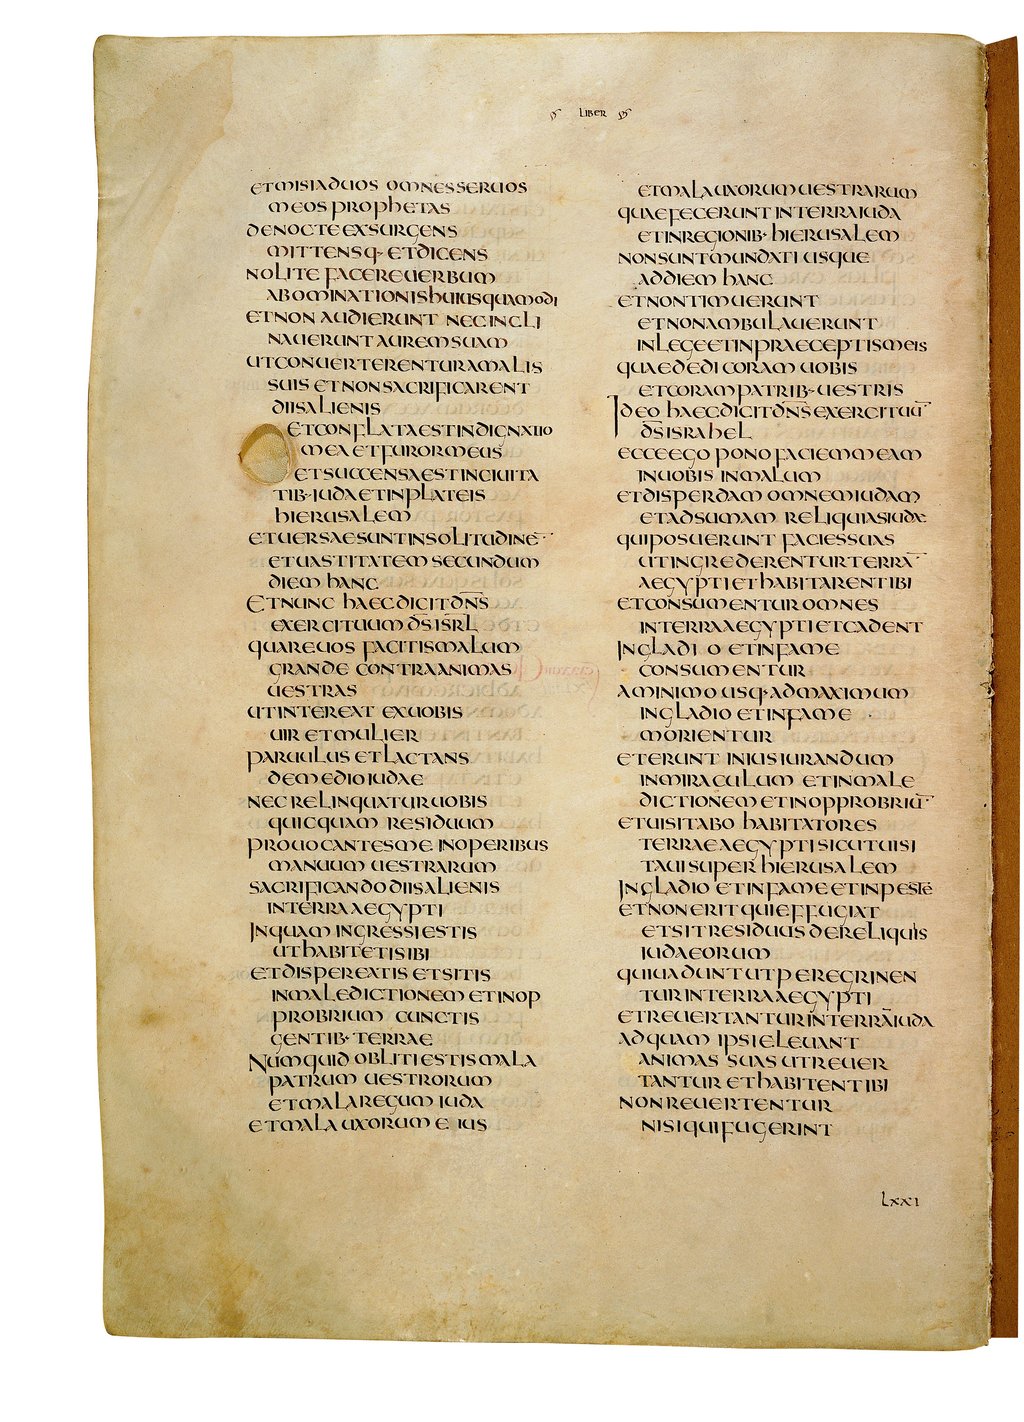 LIBER
ET MISI AD UOS OMNES SERUOS
MEOS PROPHETAS
DE NOCTE EXSURGENS
MITTENSQ· ET DICENS
NOLITE FACERE UERBUM
ABOMINATIONIS HUIUSQUAMODI
ET NON AUDIERUNT NEC INCLI
NAUERUNT AUREM SUAM
UT CONUERTERENTUR A MALIS
SUIS ET NON SACRIFICARENT
DIIS ALIENIS
ET CONFLATA EST INDIGNATIO
MEA ET FUROR MEUS
ET SUCCENSA EST IN CIUITA
TIB· IUDA ET IN PLATEIS
HIERUSALEM
ET UERSAE SUNT IN SOLITUDINE¯
ET UASTITATEM SECUNDUM
DIEM HANC
ET NUNC HAEC DICIT DN̄S
EXERCITUUM D̄S ISRL̄
QUARE UOS FACITIS MALUM
GRANDE CONTRA ANIMAS
UESTRAS
UT INTEREAT EX UOBIS
UIR ET MULIER
PARUULUS ET LACTANS
DE MEDIO IUDAE
NEC RELINQUATUR UOBIS
QUICQUAM RESIDUUM
PROUOCANTES ME IN OPERIBUS
MANUUM UESTRARUM
SACRIFICANDO DIIS ALIENIS
IN TERRA AEGYPTI
IN QUAM INGRESSI ESTIS
UT HABITETIS IBI
ET DISPEREATIS ET SITIS
IN MALEDICTIONEM ET IN OP
PROBRIUM CUNCTIS
GENTIB· TERRAE
NUMQUID OBLITI ESTIS MALA
PATRUM UESTRORUM
ET MALA REGUM IUDA
ET MALA UXORUM EIUS
ET MALA UXORUM UESTRARUM
QUAE FECERUNT IN TERRA IUDA
ET IN REGIONIB· HIERUSALEM
NON SUNT MUNDATI USQUE
AD DIEM HANC
ET NON TIMUERUNT
ET NON AMBULAUERUNT
IN LEGE ET IN PRAECEPTIS MEIS
QUAE DEDI CORAM UOBIS
ET CORAM PATRIB· UESTRIS
IDEO HAEC DICIT DN̄S EXERCITUU¯
D̄S ISRAHEL
ECCE EGO PONO FACIEM MEAM
IN UOBIS IN MALUM
ET DISPERDAM OMNEM IUDAM
ET ADSUMAM RELIQUIAS IUDAE
QUI POSUERUNT FACIES SUAS
UT INGREDERENTUR TERRA¯
AEGYPTI ET HABITARENT IBI
ET CONSUMENTUR OMNES
IN TERRA AEGYPTI ET CADENT
IN GLADIO ET IN FAME
CONSUMENTUR
A MINIMO USQ· AD MAXIMUM
IN GLADIO ET IN FAME
MORIENTUR
ET ERUNT IN IUSIURANDUM
IN MIRACULUM ET IN MALE
DICTIONEM ET IN OPPROBRIU¯
ET UISITABO HABITATORES
TERRAE AEGYPTI SICUT UISI
TAUI SUPER HIERUSALEM
IN GLADIO ET IN FAME ET IN PESTE
ET NON ERIT QUI EFFUGIAT
ET SIT RESIDUUS DE RELIQUIS
IUDAEORUM
QUI UADUNT UT PEREGRINEN
TUR IN TERRA AEGYPTI
ET REUERTANTUR IN TERRĀ IUDA
AD QUAM IPSI ELEUANT
ANIMAS SUAS UT REUER
TANTUR ET HABITENT IBI
NON REUERTENTUR
NISI QUI FUGERINT
LXXI